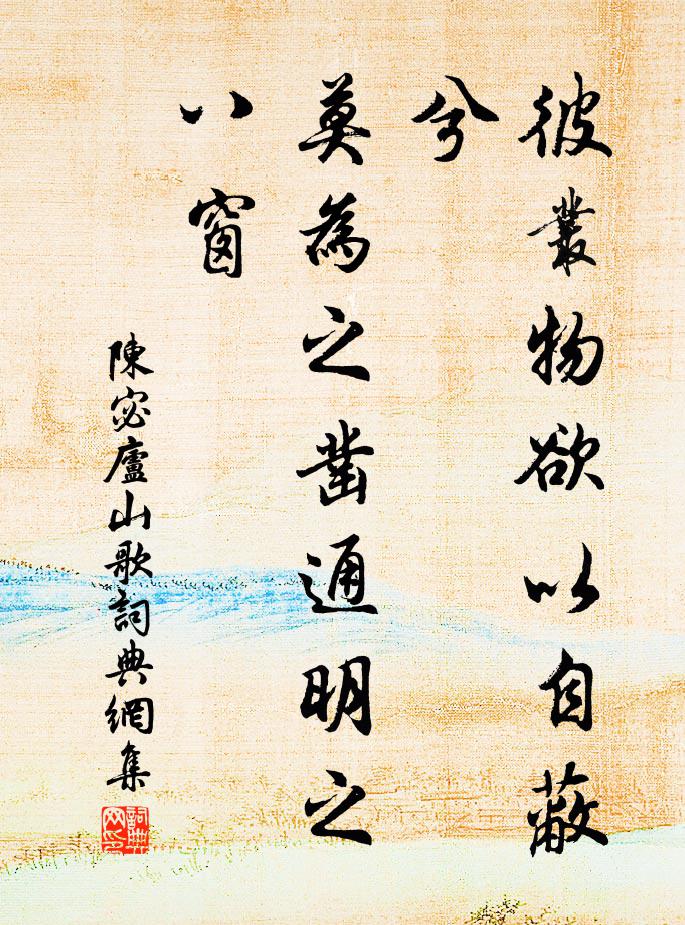 彼叢物欲以自蔽
兮
莫為之凿通明之
八窗
陳宓廬山歌詞典網集
詞典网印